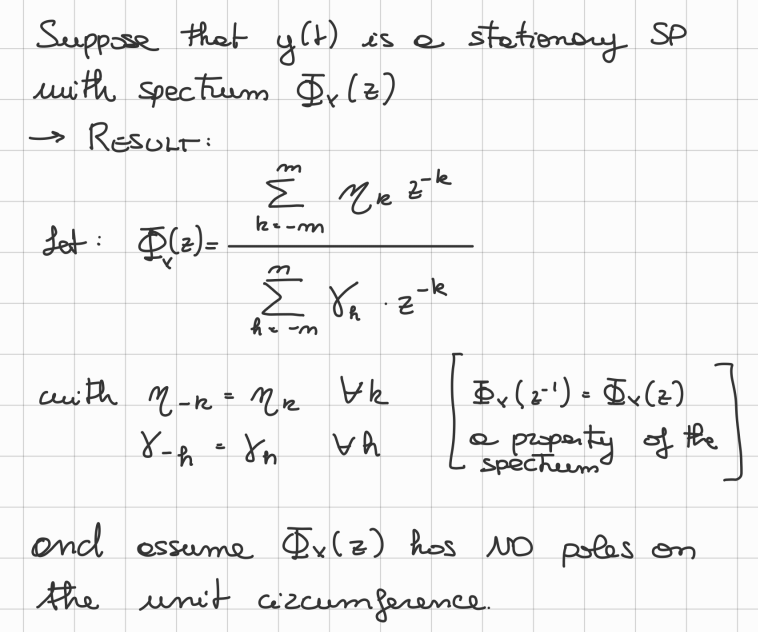 Suppose that y(t) is a stationary SP
with spectrum Φᵧ(z)
→ RESULT:
let: Φᵧ(z) = \frac{\sum_{k=-m}^{m} η_k z^{-k}}{\sum_{h=-m}^{m} γ_h · z^{-k}}
with η_{-k} = η_k ∀k [Φᵧ(z^{-1}) = Φᵧ(z)
γ_{-h} = γ_h ∀h a property of the
spectrum]
and assume Φᵧ(z) has NO poles on
the unit circumference.